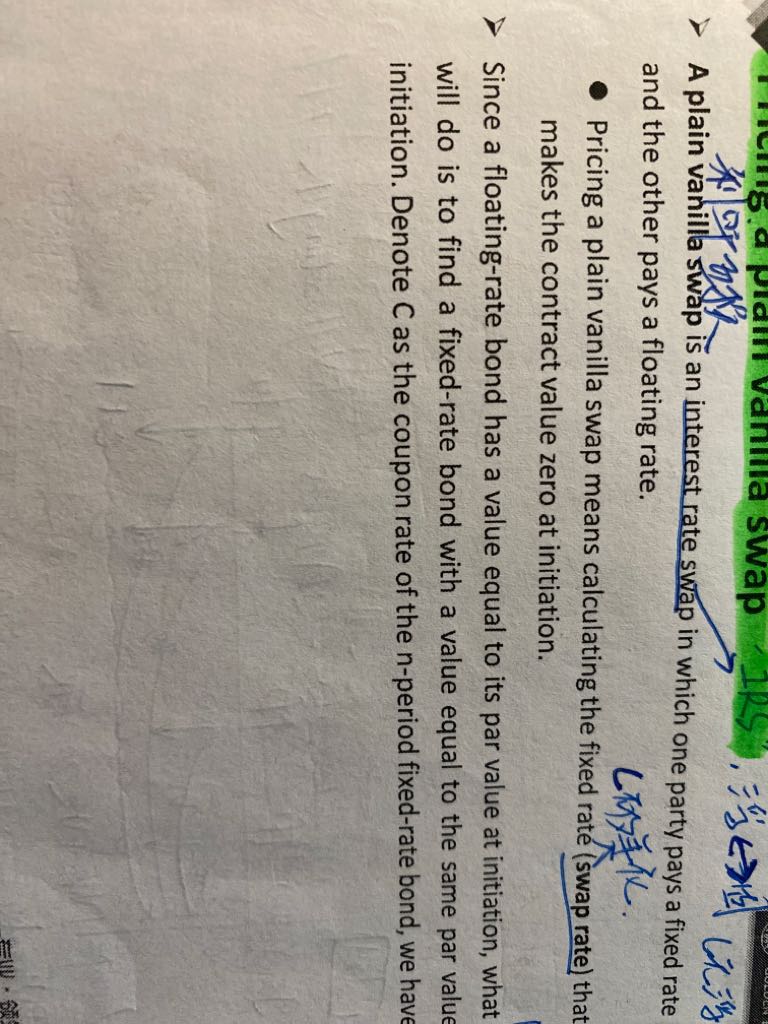 Pricing a plain vanilla swap IRS
利率互换
➢ A plain vanilla swap is an interest rate swap in which one party pays a fixed rate
and the other pays a floating rate.
● Pricing a plain vanilla swap means calculating the fixed rate (swap rate) that
makes the contract value zero at initiation.
➢ Since a floating-rate bond has a value equal to its par value at initiation, what
will do is to find a fixed-rate bond with a value equal to the same par value
initiation. Denote C as the coupon rate of the n-period fixed-rate bond, we have